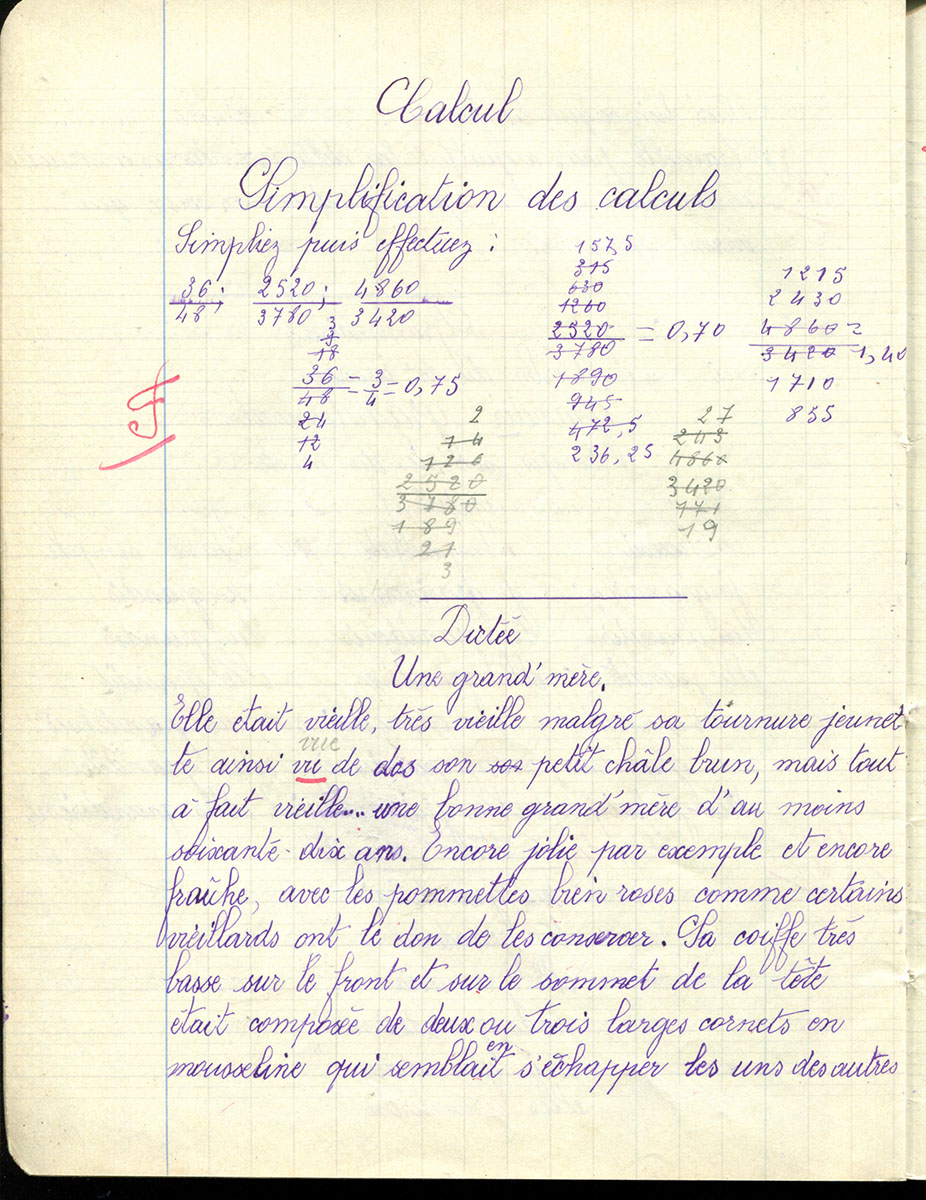 Calcul
Simplification des calculs
Simpliez puis effectuez :
36/48 ; 2520/3780 ; 4860/3420
3
18
36/48 = 3/4 = 0,75
24
12
4
157,5
315
630
1260
2520/3780 = 0,70
1890
945
472,5
236,25
1215
2430
4860/3420 = 1,40
1710
855
2
14
126
2520
3780
189
21
3
27
243
4860
3420
171
19
Dictée
Une grand'mère.
Elle était vieille, très vieille malgré sa tournure jeunet-
vue
te ainsi vu de dos son petit châle brun, mais tout
à fait vieille... une bonne grand'mère d'au moins
soixante-dix ans. Encore jolie par exemple et encore
fraîche, avec les pommettes bien roses comme certains
vieillards ont le don de les conserver. Sa coiffe très
basse sur le front et sur le sommet de la tête
était composée de deux ou trois larges cornets en
en
mousseline qui semblait s'échapper les uns des autres